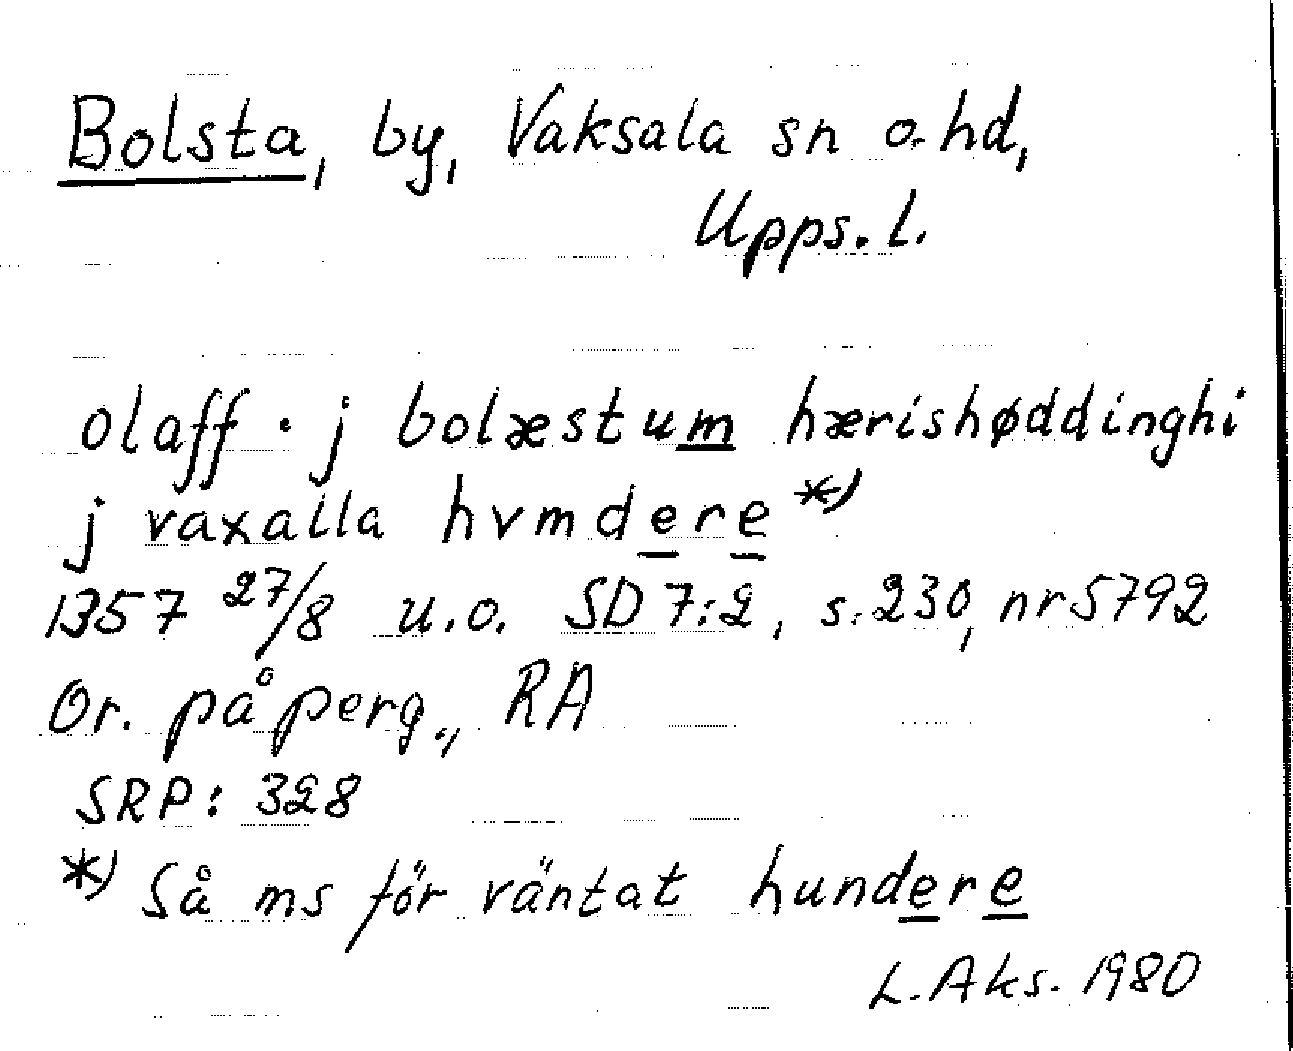 Bolsta, by, Vaksala sn o. hd,
Upps. l.
olaff · j bolæstum hærishøddinghi
j vaxalla hvmdere *)
1357 27/8 u.o. SD 7:2, s. 230, nr 5792
Or. på perg., RA
SRP: 328
*) Så ms för väntat hundere
L. Aks. 1980